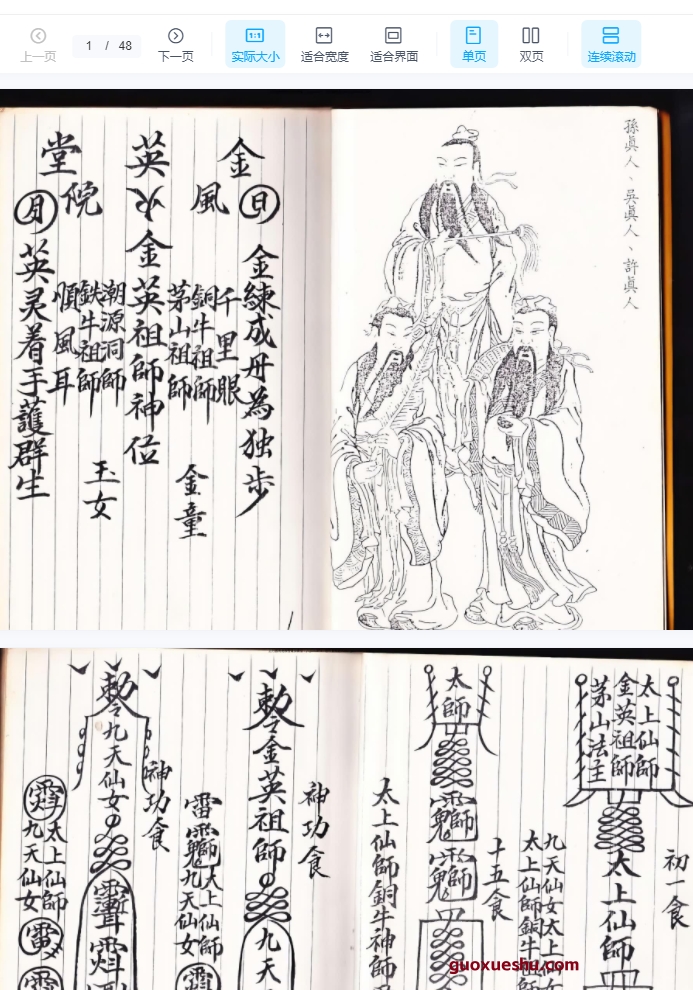 上一页
1 / 48
下一页
实际大小
适合宽度
适合界面
单页
双页
连续滚动
孫眞人、吳眞人、許眞人
金英堂
風院
日
月
金練成丹為独步
千里眼
銅牛祖師
茅山祖師
金英祖師神位
潮源洞師
鉄牛祖師
順風耳
英灵着手護群生
金童
玉女
太上仙師
金英祖師
茅山法主
太上仙師
初一食
九天仙女太上仙
太上仙師銅牛
十五食
太師
太上仙師銅牛神師
神功食
敕令金英祖師
九天
雷
太上仙師
九天仙女
神功食
敕令九天仙女
太上仙師
九天仙女
guoxueshu.com